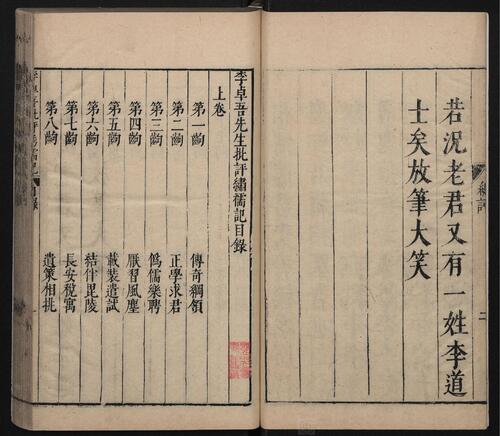 若況老君又有一姓李道
士矣放筆大笑
總評
二
李卓吾先生批評繡襦記目錄
上卷
第一齣 傳奇綱領
第二齣 正學求君
第三齣 偽儒樂聘
第四齣 厭習風塵
第五齣 載裝遣試
第六齣 結伴毘陵
第七齣 長安稅寓
第八齣 遺策相挑